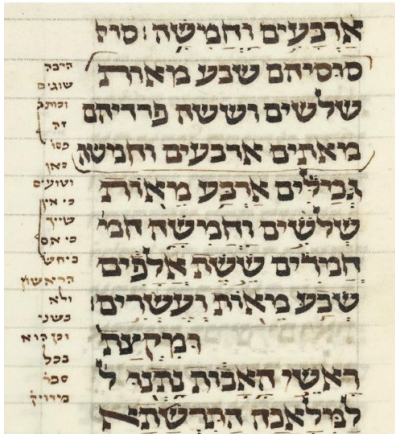 ארבעים וחמישה : סוס
סוסיהם שבע מאות
שלשים וששה פרדיהם
מאתים ארבעים וחמשה
גמלים ארבע מאות
שלשים וחמישה חמ
חמרים ששת אלפים
שבע מאות ועשרים
ומקצת
ראשי האבות נתנו ל
למלאכה התרשתא
הרבה
שוגים
וכותב
זה
פסו
כאן
וטועים
כי אין
שייך
כי אם
ביחש
הראשון
ולא
בשני
וכן הוא
בכל
ספר
מדויק